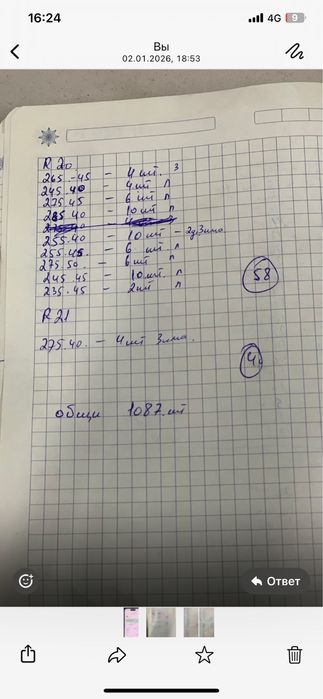 16:24
4G 9
Вы
02.01.2026, 18:53
R 20
265.-45 - 4 шт. З
245.40 - 4 шт Л
275.45 - 6 шт Л
285.40 - 10 шт Л
255.40 - 10 шт - 2д Зима
255.45. - 6 шт Л
275.50 - 6 шт Л
245.45 - 10 шт Л
235.45 - 2 шт Л
58
R 21
275.40. - 4 шт Зима.
4
общи 1087.шт
Ответ